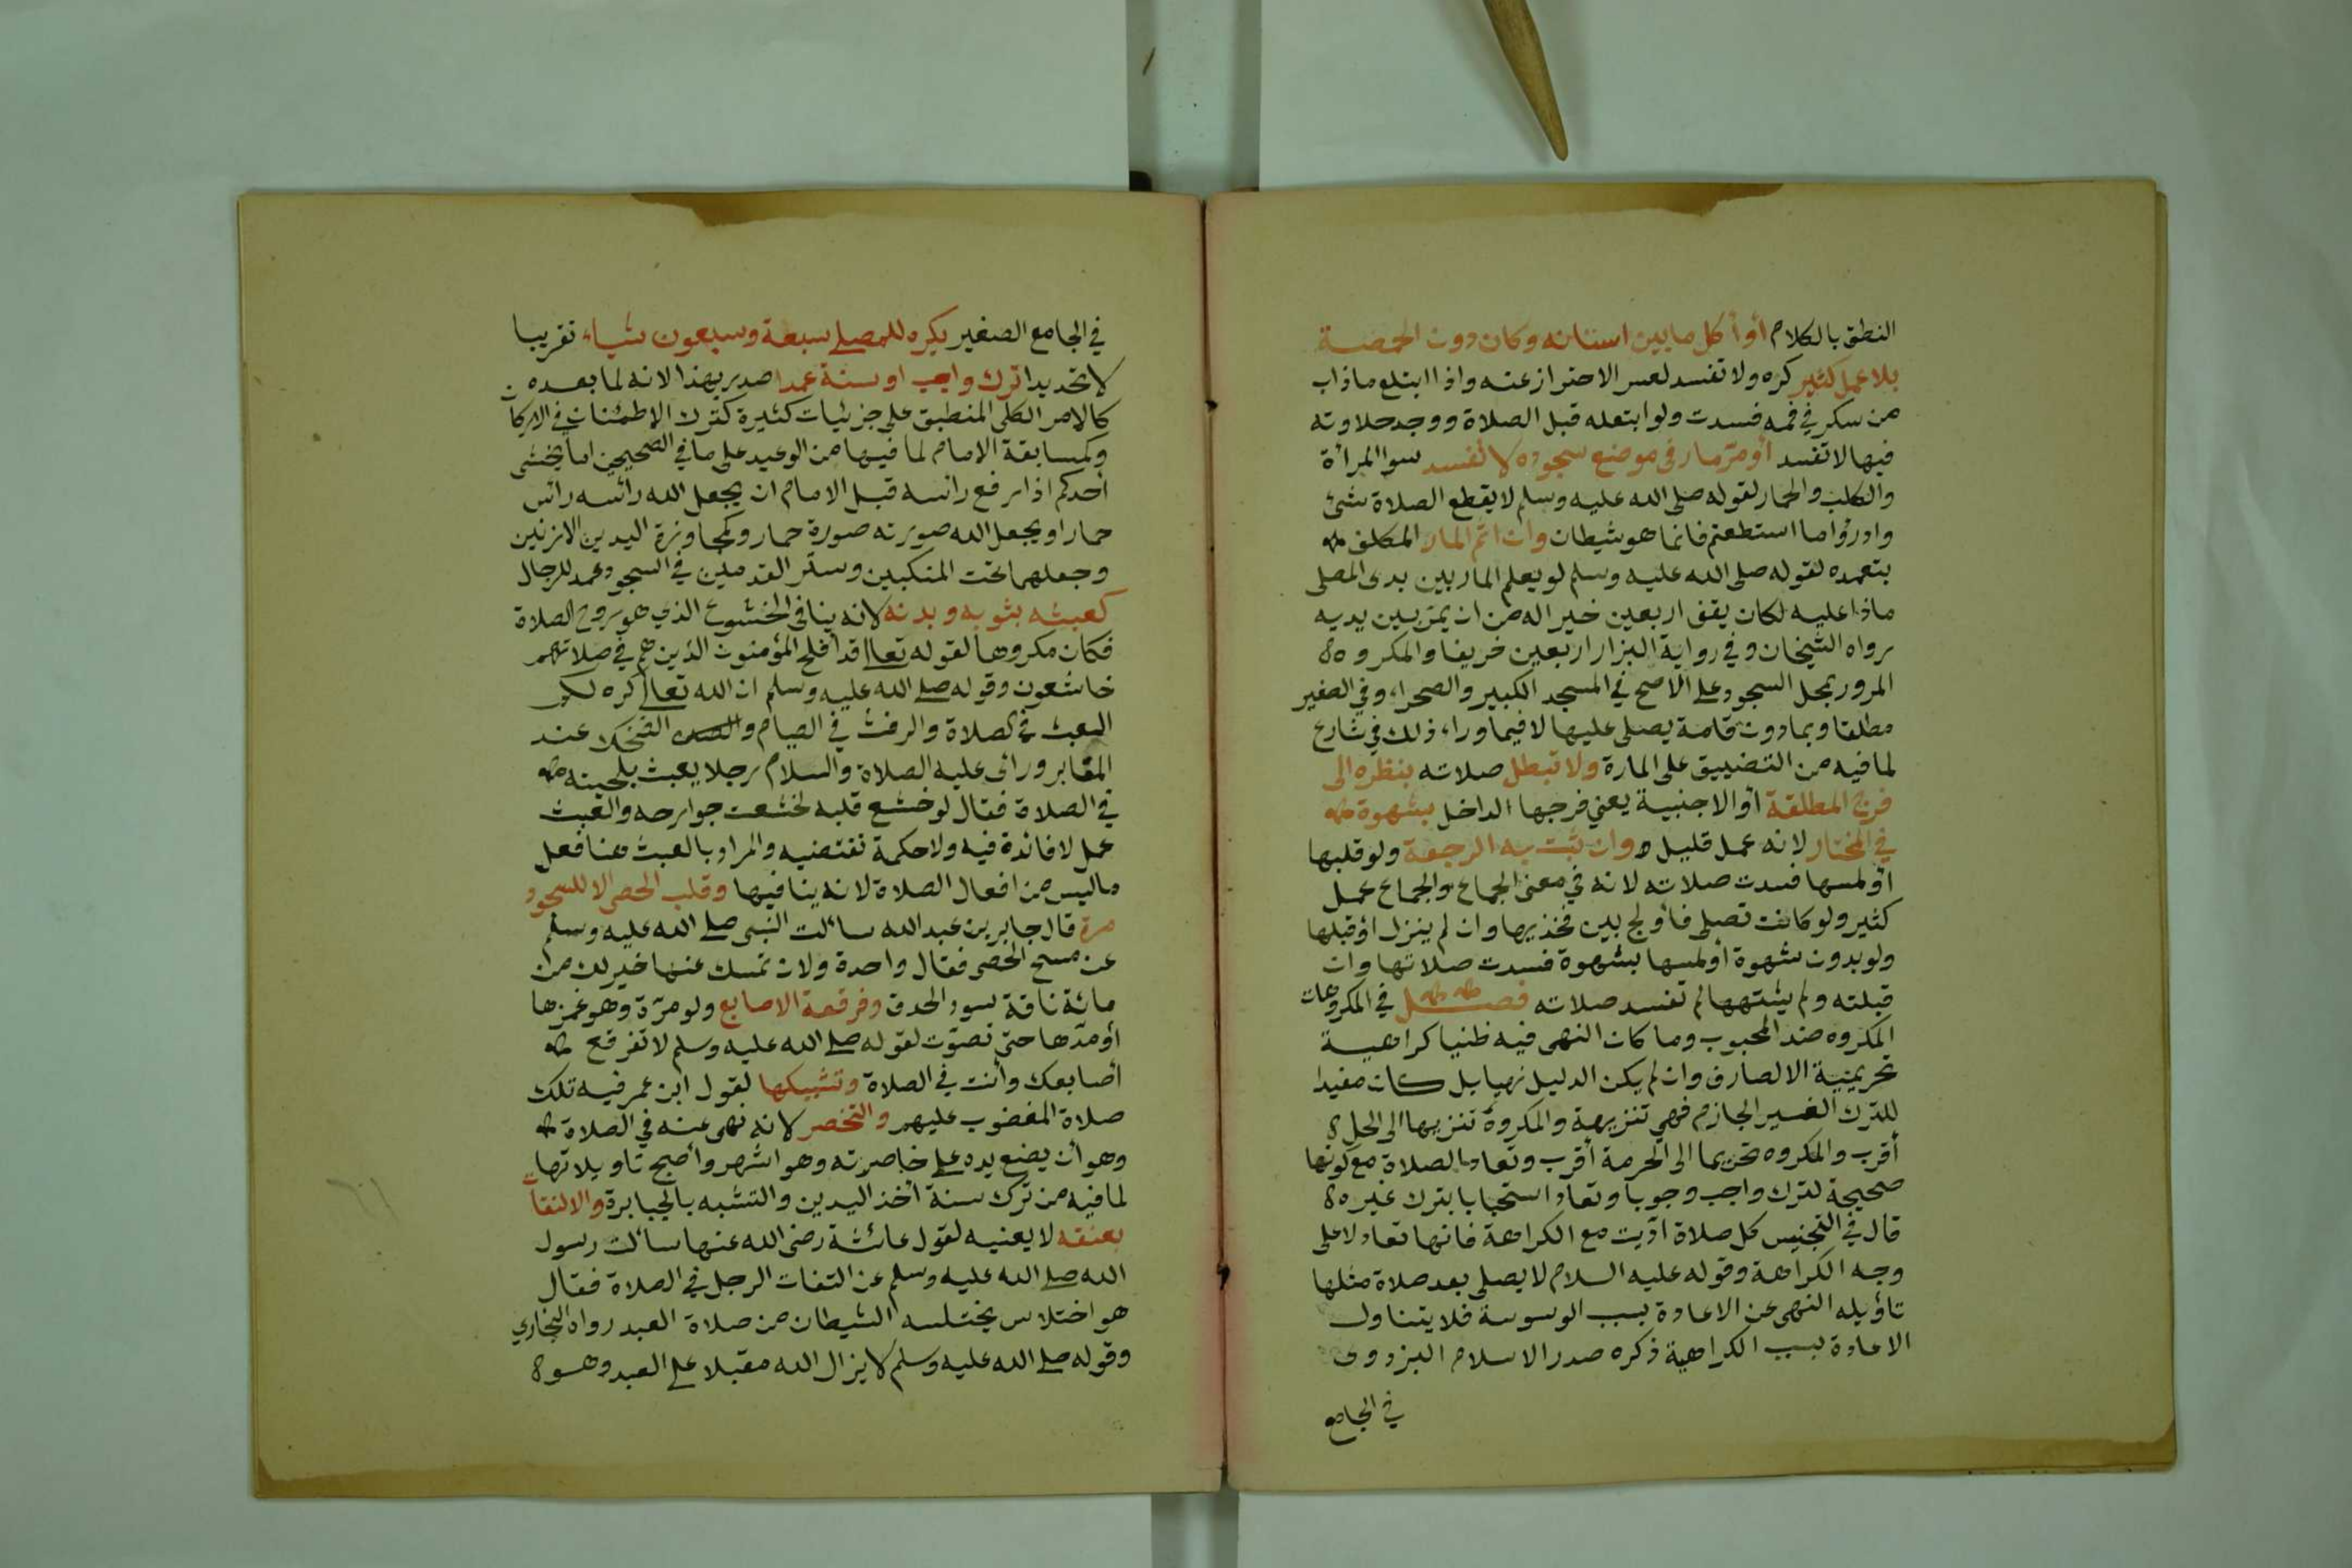 النطق بالكلام أو أكل ما بين اسنانه وكان دون الحمصة
بلا عمل كثير كره ولا تفسد لعسر الاحتراز عنه واذا ابتلع ما ذاب
من سكر في فمه فسدت ولو ابتعله قبل الصلاة ووجد حلاوته
فيها لا تفسد أو مرّ مار في موضع سجوده لا تفسد سوا المرأة
والكلب والحمار لقوله صلى الله عليه وسلم لا يقطع الصلاة شئ
وادرؤا ما استطعتم فانما هو شيطان وان اثم المار المكلف
بتعمده لقوله صلى الله عليه وسلم لو يعلم المار بين يدى المصلى
ماذا عليه لكان يقف اربعين خير اله من ان يمرّ بين يديه
رواه الشيخان وفي رواية البزار اربعين خريفا والمكروه
المرور بمحل السجود على الاصح في المسجد الكبير والصحراء وفي الصغير
مطلقا وبما دون قامة يصلى عليها لا فيما وراء ذلك في شارع
لما فيه من التضييق على المارة ولا تبطل صلاته بنظره الى
فرج المطلقة أو الاجنبية يعني فرجها الداخل بشهوة
في المختار لانه عمل قليل وان ثبت به الرجعة ولو قلبها
أو لمسها فسدت صلاته لانه في معنى الجماع والجماع عمل
كثير ولو كانت تصلى فأولج بين فخذيها وان لم ينزل أو قبلها
ولو بدون شهوة أو لمسها بشهوة فسدت صلاتها وان
قبلته ولم يشتهها لم تفسد صلاته فصل في المكروهات
المكروه ضد المحبوب وما كان النهى فيه ظنيا كراهية
تحريمية الا لصارف وان لم يكن الدليل نهيا بل كان مفيدا
للترك الغير الجازم فهي تنزيهة والمكروه تنزيها الى الحل
أقرب والمكروه تحريما الى الحرمة أقرب وتعاد الصلاة مع كونها
صحيحة لترك واجب وجوبا وتعاد استحبابا بترك غيره
قال في التجنيس كل صلاة اديت مع الكراهة فانها تعاد لا على
وجه الكراهة وقوله عليه السلام لا يصلى بعد صلاة مثلها
تاؤيله النهى عن الاعادة بسبب الوسوسة فلا يتناول
الاعادة بسبب الكراهية ذكره صدر الاسلام البزدوى
في الجامع
في الجامع الصغير يكره للمصلى سبعة وسبعون شياء تقريبا
لا تحديدا ترك واجب او سنة عمدا صدر بهذا لانه لما بعده
كالامر الكلى المنطبق على جزئيات كثيرة كترك الاطمئنان في الاركان
وكمسابقة الامام لما فيها من الوعيد على ما في الصحيحين اما يخشى
أحدكم اذا رفع رائسه قبل الامام ان يجعل الله رائسه رائس
حمار او يجعل الله صورته صورة حمار وكمجاوزة اليدين الاذنين
وجعلهما تحت المنكبين وستر القدمين في السجود عمد للرجال
كعبثه بثوبه وبدنه لانه ينافى الخشوع الذي هو روح الصلاة
فكان مكروها لقوله تعالى قد أفلح المؤمنون الذين هم في صلاتهم
خاشعون وقوله صلى الله عليه وسلم ان الله تعالى كره لكم
العبث في الصلاة والرفث في الصيام والضحك عند
المقابر ورائى عليه الصلاة والسلام رجلا يعبث بلحيته
في الصلاة فقال لو خشع قلبه لخشعت جوارحه والعبث
عمل لا فائدة فيه ولا حكمة تقتضيه والمراد بالعبث هنا فعل
ماليس من افعال الصلاة لانه ينافيها وقلب الحصى الا للسجود
مرة قال جابر بن عبد الله سائلت النبى صلى الله عليه وسلم
عن مسح الحصى فقال واحدة ولان تمسك عنها خير لك من
مائة ناقة سود الحدق وفرقعة الاصابع ولو مرّة وهو غمزها
أو مدّها حتى تصوّت لقوله صلى الله عليه وسلم لا تفرقع
أصابعك وأنت في الصلاة وتشبيكها لقول ابن عمر فيه تلك
صلاة المغضوب عليهم والتخصر لانه نهى عنه في الصلاة
وهو أن يضع يده على خاصرته وهو اشهر وأصح تاويلاتها
لما فيه من ترك سنة أخذ اليدين والتشبه بالجبابرة والالتفات
بعنقه لا يعنيه لقول عائشة رضى الله عنها سائلت رسول
الله صلى الله عليه وسلم عن التفات الرجل في الصلاة فقال
هو اختلاس يختلسه الشيطان من صلاة العبد رواه البخاري
وقوله صلى الله عليه وسلم لا يزال الله مقبلا على العبد وهو